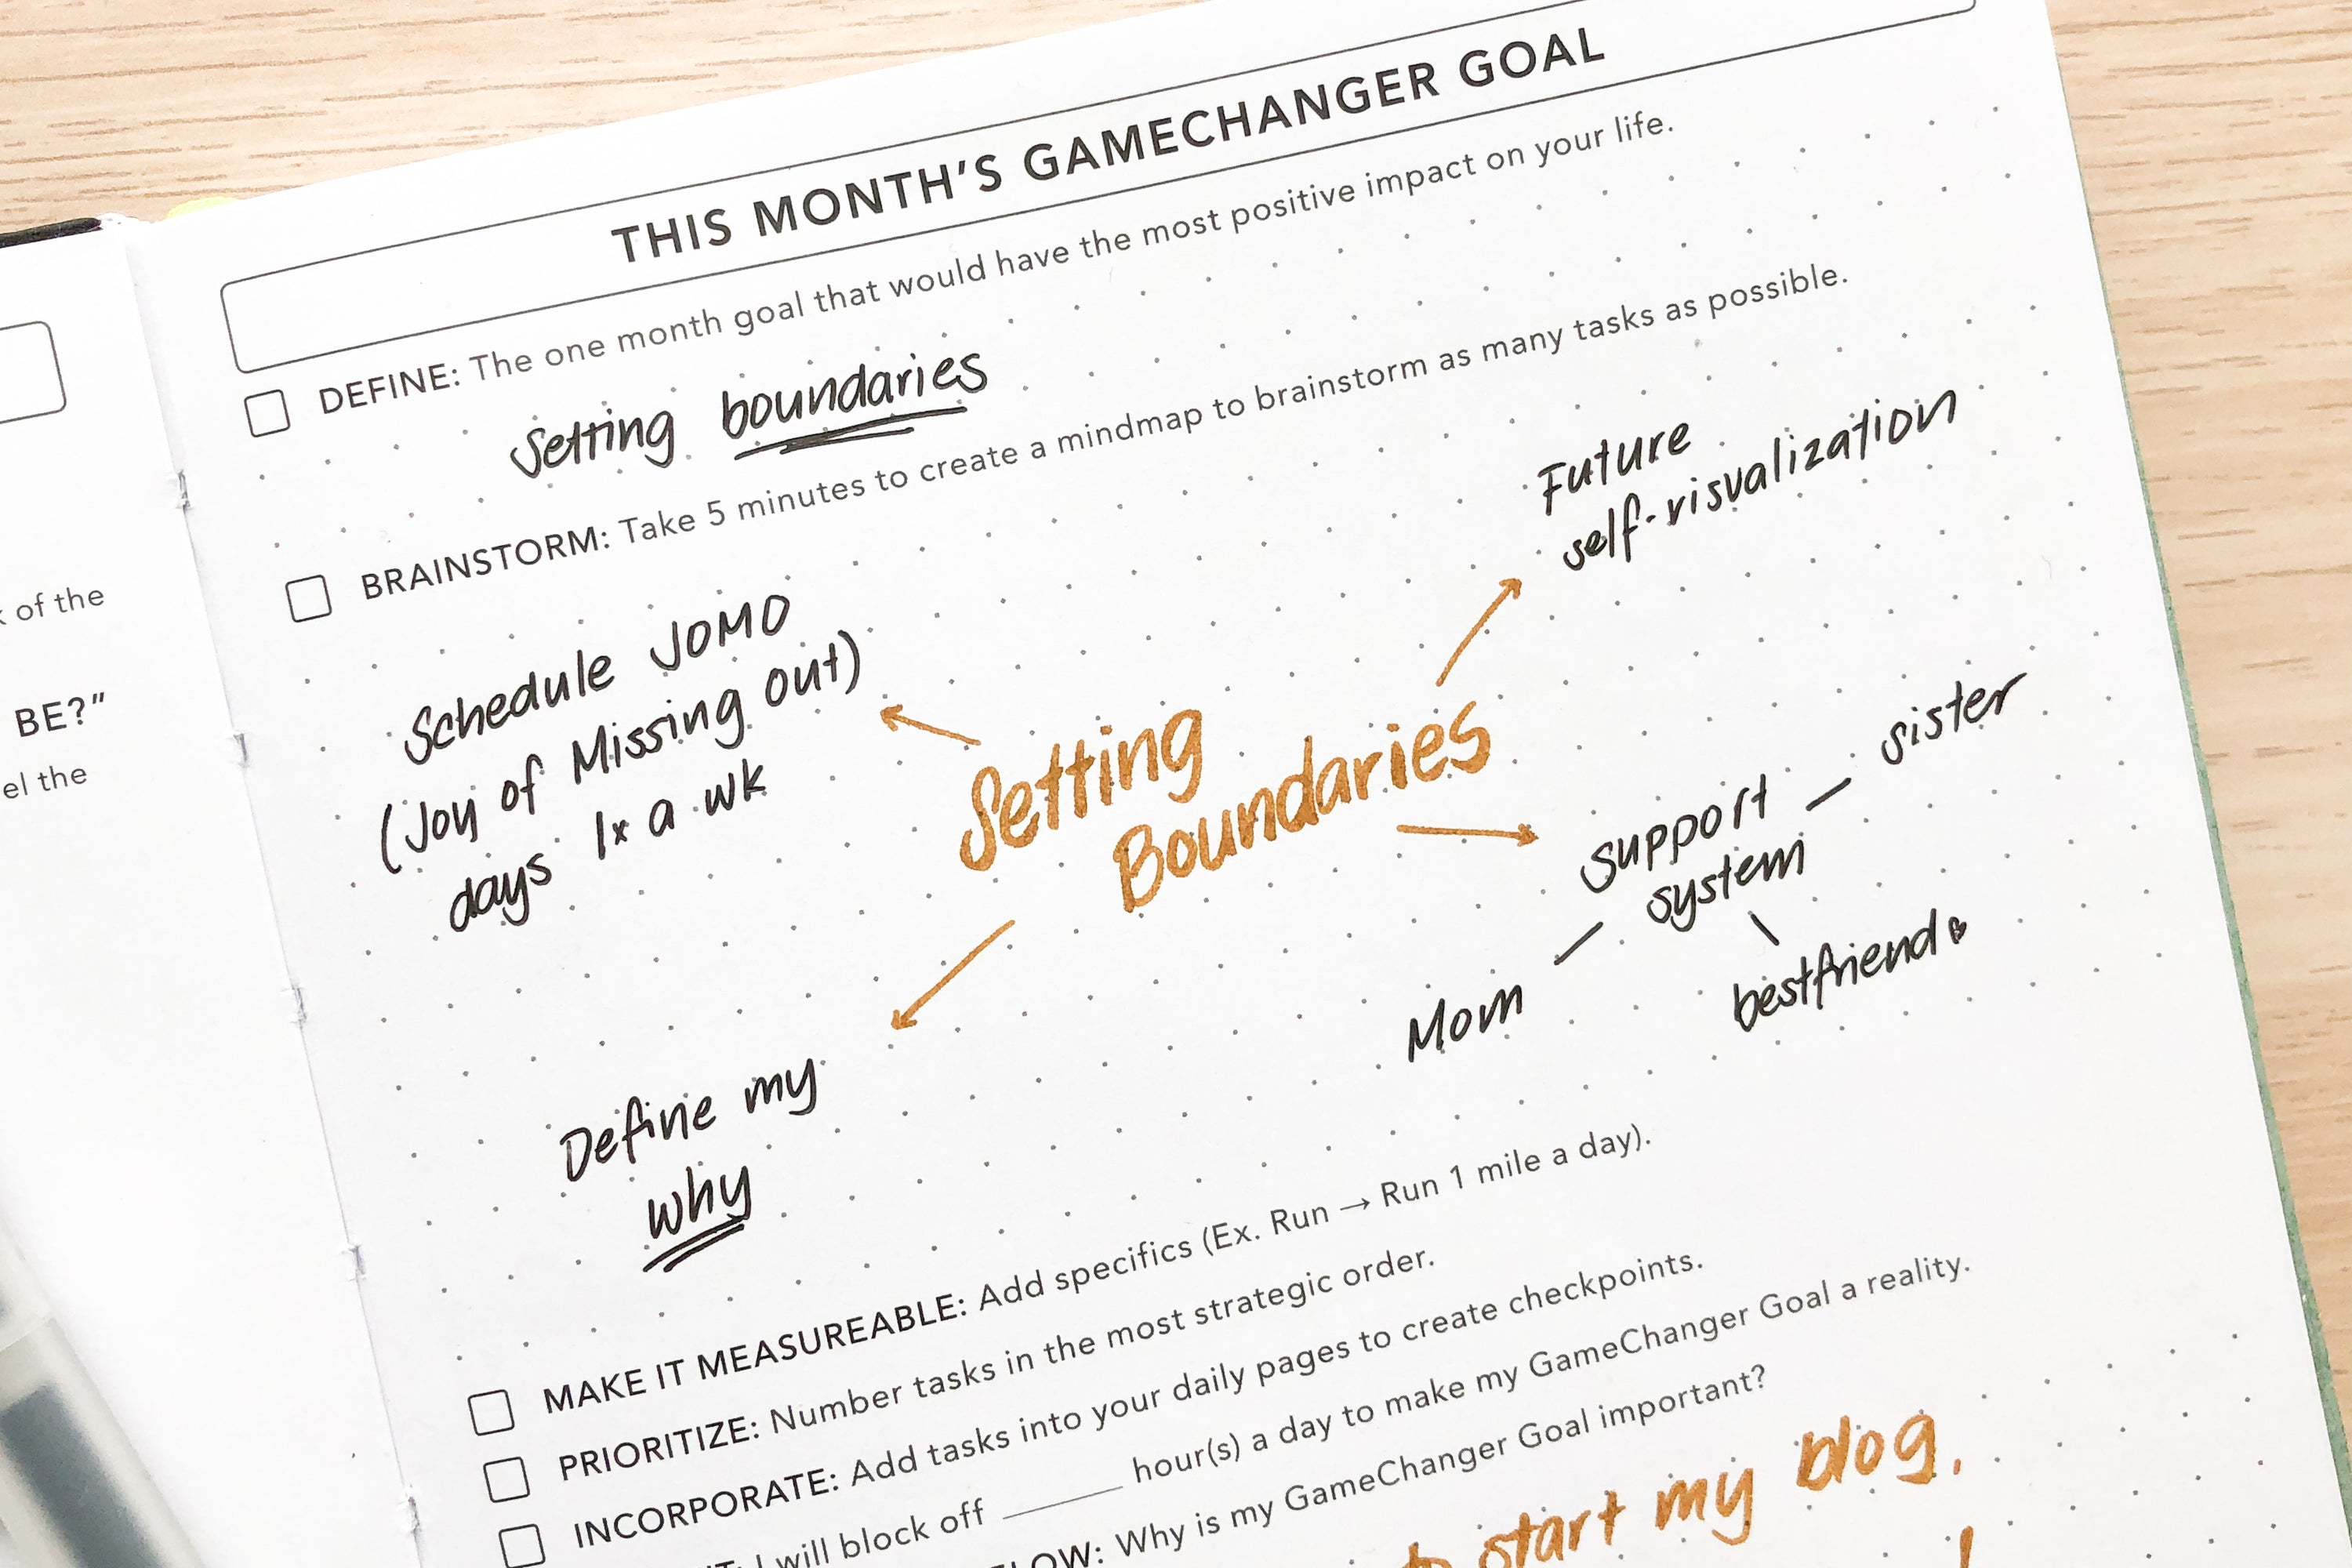 THIS MONTH'S GAMECHANGER GOAL
DEFINE: The one month goal that would have the most positive impact on your life.
Setting boundaries
BRAINSTORM: Take 5 minutes to create a mindmap to brainstorm as many tasks as possible.
Future
self-visualization
Schedule JOMO
(Joy of Missing out)
days 1x a wk
Setting
Boundaries
support
system
sister
Mom
bestfriend
Define my
why
MAKE IT MEASUREABLE: Add specifics (Ex. Run → Run 1 mile a day).
PRIORITIZE: Number tasks in the most strategic order.
INCORPORATE: Add tasks into your daily pages to create checkpoints.
I will block off ______ hour(s) a day to make my GameChanger Goal a reality.
Why is my GameChanger Goal important?
start my blog.
of the
BE?"
the